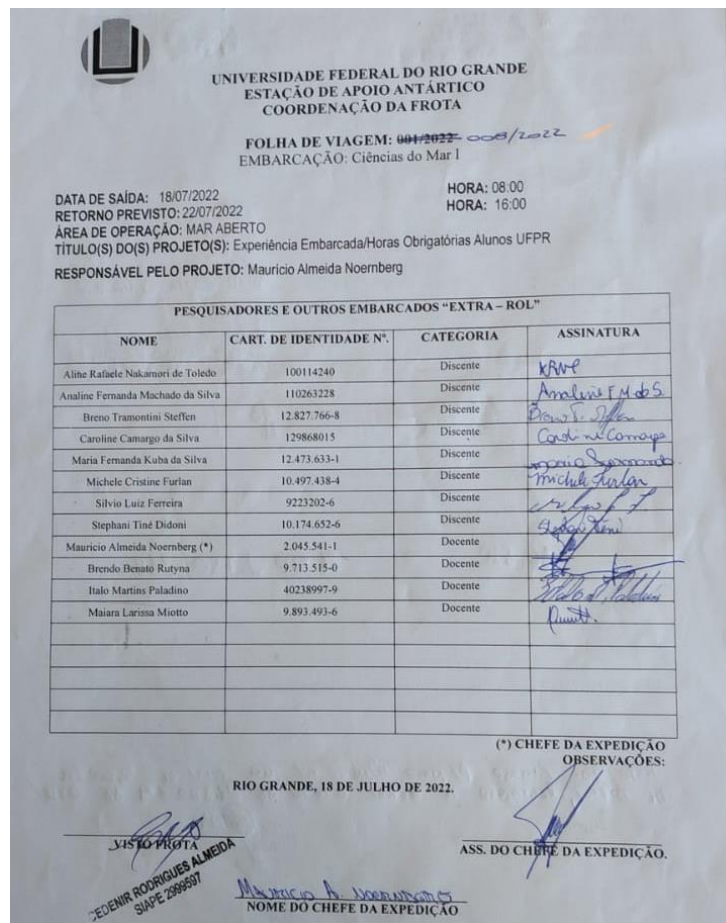 UNIVERSIDADE FEDERAL DO RIO GRANDE
ESTAÇÃO DE APOIO ANTÁRTICO
COORDENAÇÃO DA FROTA
FOLHA DE VIAGEM: 001/2022 008/2022
EMBARCAÇÃO: Ciências do Mar I
DATA DE SAÍDA: 18/07/2022 HORA: 08:00
RETORNO PREVISTO: 22/07/2022 HORA: 16:00
ÁREA DE OPERAÇÃO: MAR ABERTO
TÍTULO(S) DO(S) PROJETO(S): Experiência Embarcada/Horas Obrigatórias Alunos UFPR
RESPONSÁVEL PELO PROJETO: Mauricio Almeida Noernberg
PESQUISADORES E OUTROS EMBARCADOS “EXTRA – ROL”
NOME CART. DE IDENTIDADE Nº. CATEGORIA ASSINATURA
Aline Rafaele Nakamori de Toledo 100114240 Discente
Analine Fernanda Machado da Silva 110263228 Discente Analine F M da S.
Breno Tramontini Steffen 12.827.766-8 Discente
Caroline Camargo da Silva 129868015 Discente Caroline Camargo
Maria Fernanda Kuba da Silva 12.473.633-1 Discente Maria Fernanda
Michele Cristine Furlan 10.497.438-4 Discente Michele Furlan
Silvio Luiz Ferreira 9223202-6 Discente
Stephani Tiné Didoni 10.174.652-6 Discente
Mauricio Almeida Noernberg (*) 2.045.541-1 Docente
Brendo Benato Rutyna 9.713.515-0 Docente
Italo Martins Paladino 40238997-9 Docente
Maiara Larissa Miotto 9.893.493-6 Docente
(*) CHEFE DA EXPEDIÇÃO
OBSERVAÇÕES:
RIO GRANDE, 18 DE JULHO DE 2022.
VISTO FROTA
ASS. DO CHEFE DA EXPEDIÇÃO.
CEDENIR RODRIGUES ALMEIDA
SIAPE 2999597
Mauricio A. Noernberg
NOME DO CHEFE DA EXPEDIÇÃO